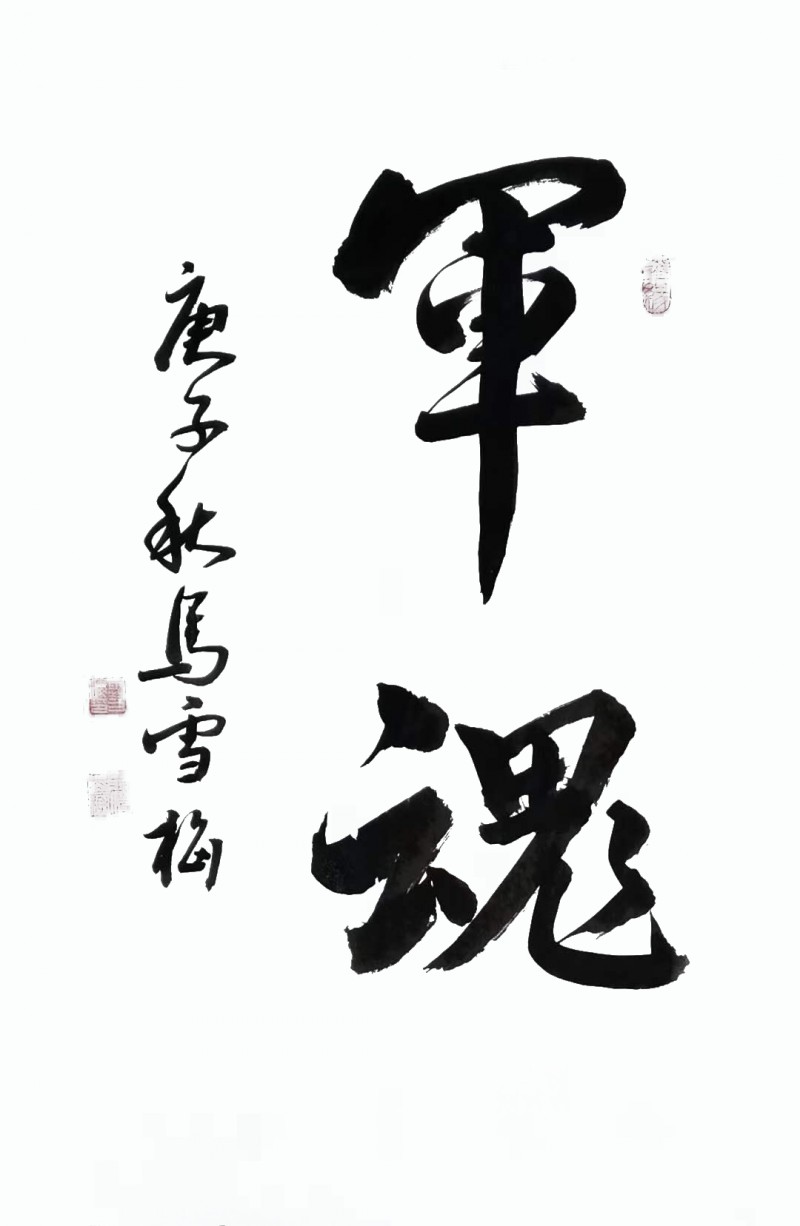 軍魂
庚子秋馬雪梅